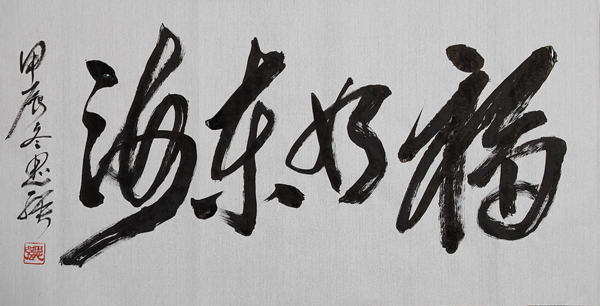 福如东海
甲辰冬思强